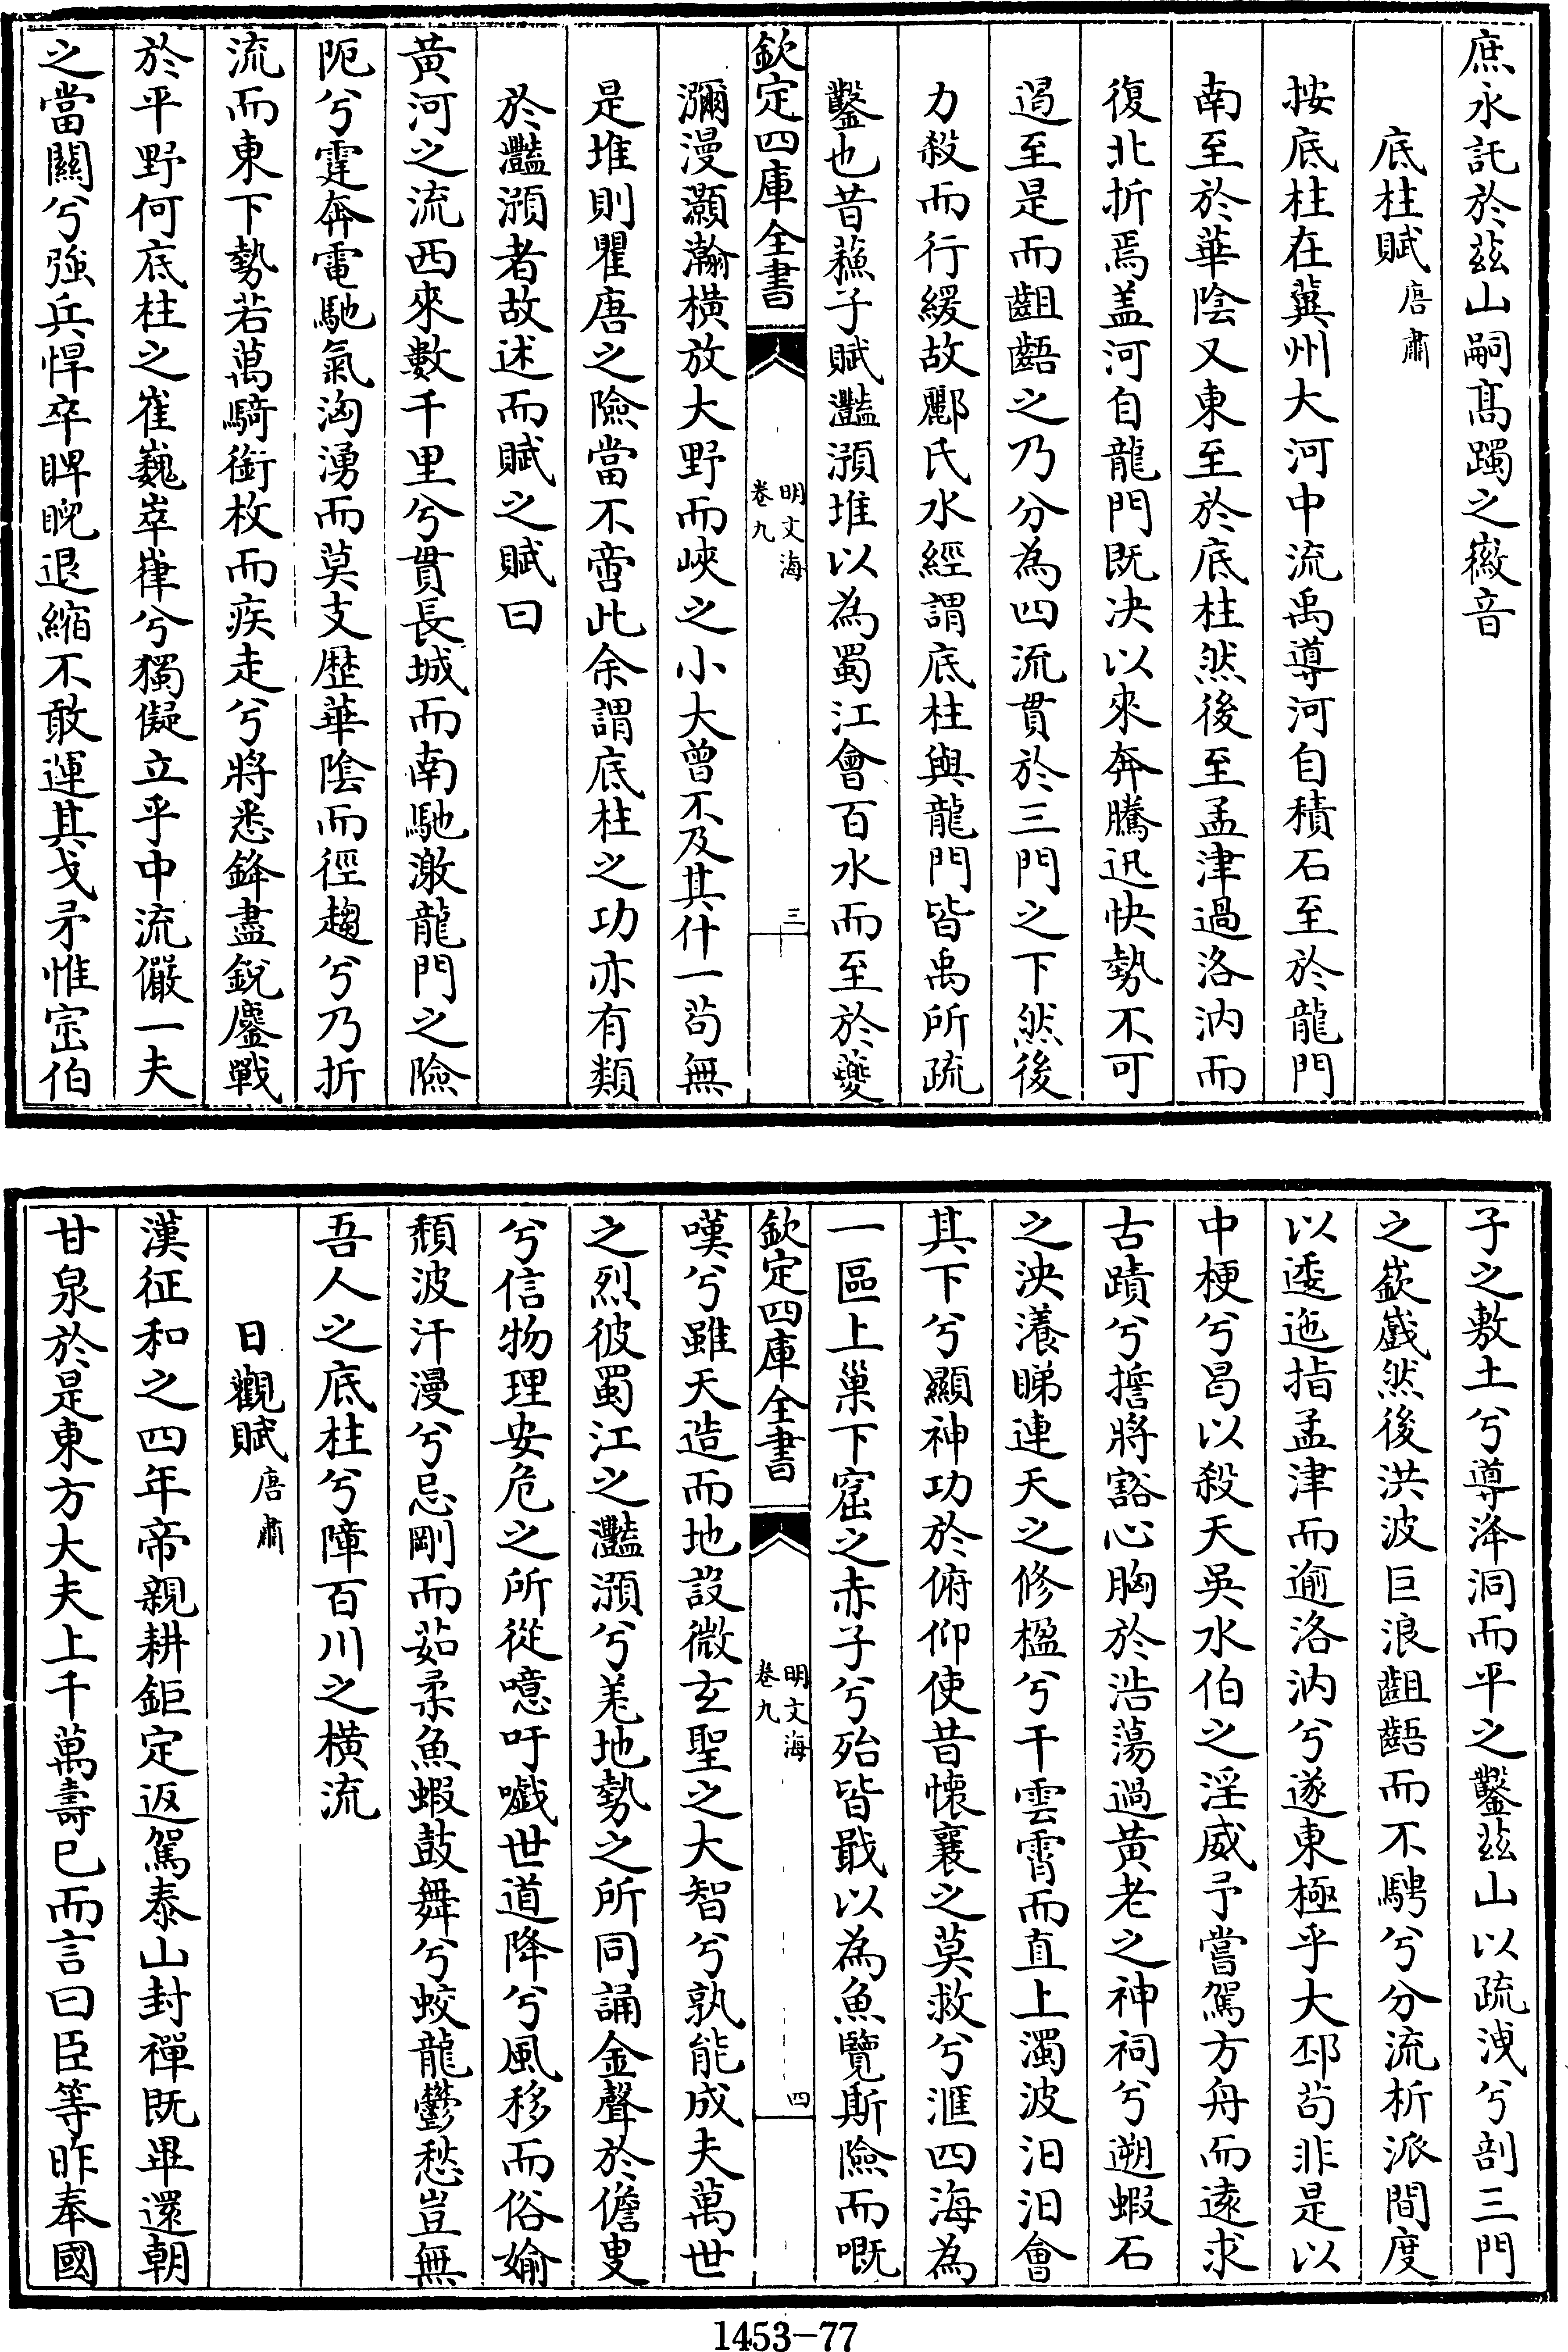 庶永託於茲山嗣髙躅之徽音
底柱賦唐肅
按底柱在冀州大河中流禹導河自積石至於龍門
南至於華陰又東至於底柱然後至孟津過洛汭而
復北折焉盖河自龍門既决以來奔騰迅快勢不可
遏至是而齟齬之乃分為四流貫於三門之下然後
力殺而行緩故酈氏水經謂底柱與龍門皆禹所疏
鑿也昔蘓子賦灩澦堆以為蜀江㑹百水而至於夔
欽定四庫全書
明文海
卷九
三
瀰漫灝瀚横放大野而峽之小大曾不及其什一茍無
是堆則瞿唐之險當不啻此余謂底柱之功亦有類
於灩澦者故述而賦之賦曰
黄河之流西來數千里兮貫長城而南馳激龍門之險
阨兮霆奔電馳氣洶湧而莫支歴華隂而徑趨兮乃折
流而東下勢若萬騎銜枚而疾走兮將悉鋒盡銳鏖戰
於平野何底柱之崔巍崒嵂兮獨儗立乎中流儼一夫
之當關兮強兵悍卒睥睨退縮不敢運其戈矛惟宻伯
子之敷土兮導洚洞而平之鑿茲山以疏洩兮剖三門
之嶔巇然後洪波巨浪齟齬而不騁兮分流析派間度
以逶迤指孟津而逾洛汭兮遂東極乎大邳茍非是以
中梗兮曷以殺天吳水伯之淫威予嘗駕方舟而逺求
古蹟兮擔將豁心胸於浩蕩過黄老之神祠兮遡蝦石
之泱瀁睇連天之修楹兮干雲霄而直上濁波汨汨㑹
其下兮顯神功於俯仰使昔懐襄之莫救兮滙四海為
一區上巢下窟之赤子兮殆皆戢以為魚覽斯險而嘅
欽定四庫全書
明文海
卷九
四
嘆兮雖天造而地設微玄聖之大智兮孰能成夫萬世
之烈彼蜀江之灩澦兮羌地勢之所同誦金聲於儋叟
兮信物理安危之所從噫吁嚱世道降兮風移而俗媮
頽波汗漫兮忌剛而茹柔魚蝦鼓舞兮蛟龍鬱愁豈無
吾人之底柱兮障百川之横流
日觀賦唐肅
漢征和之四年帝親耕鉅定返駕泰山封禪既畢還朝
甘泉於是東方大夫上千萬壽已而言曰臣等昨奉國
1453—77